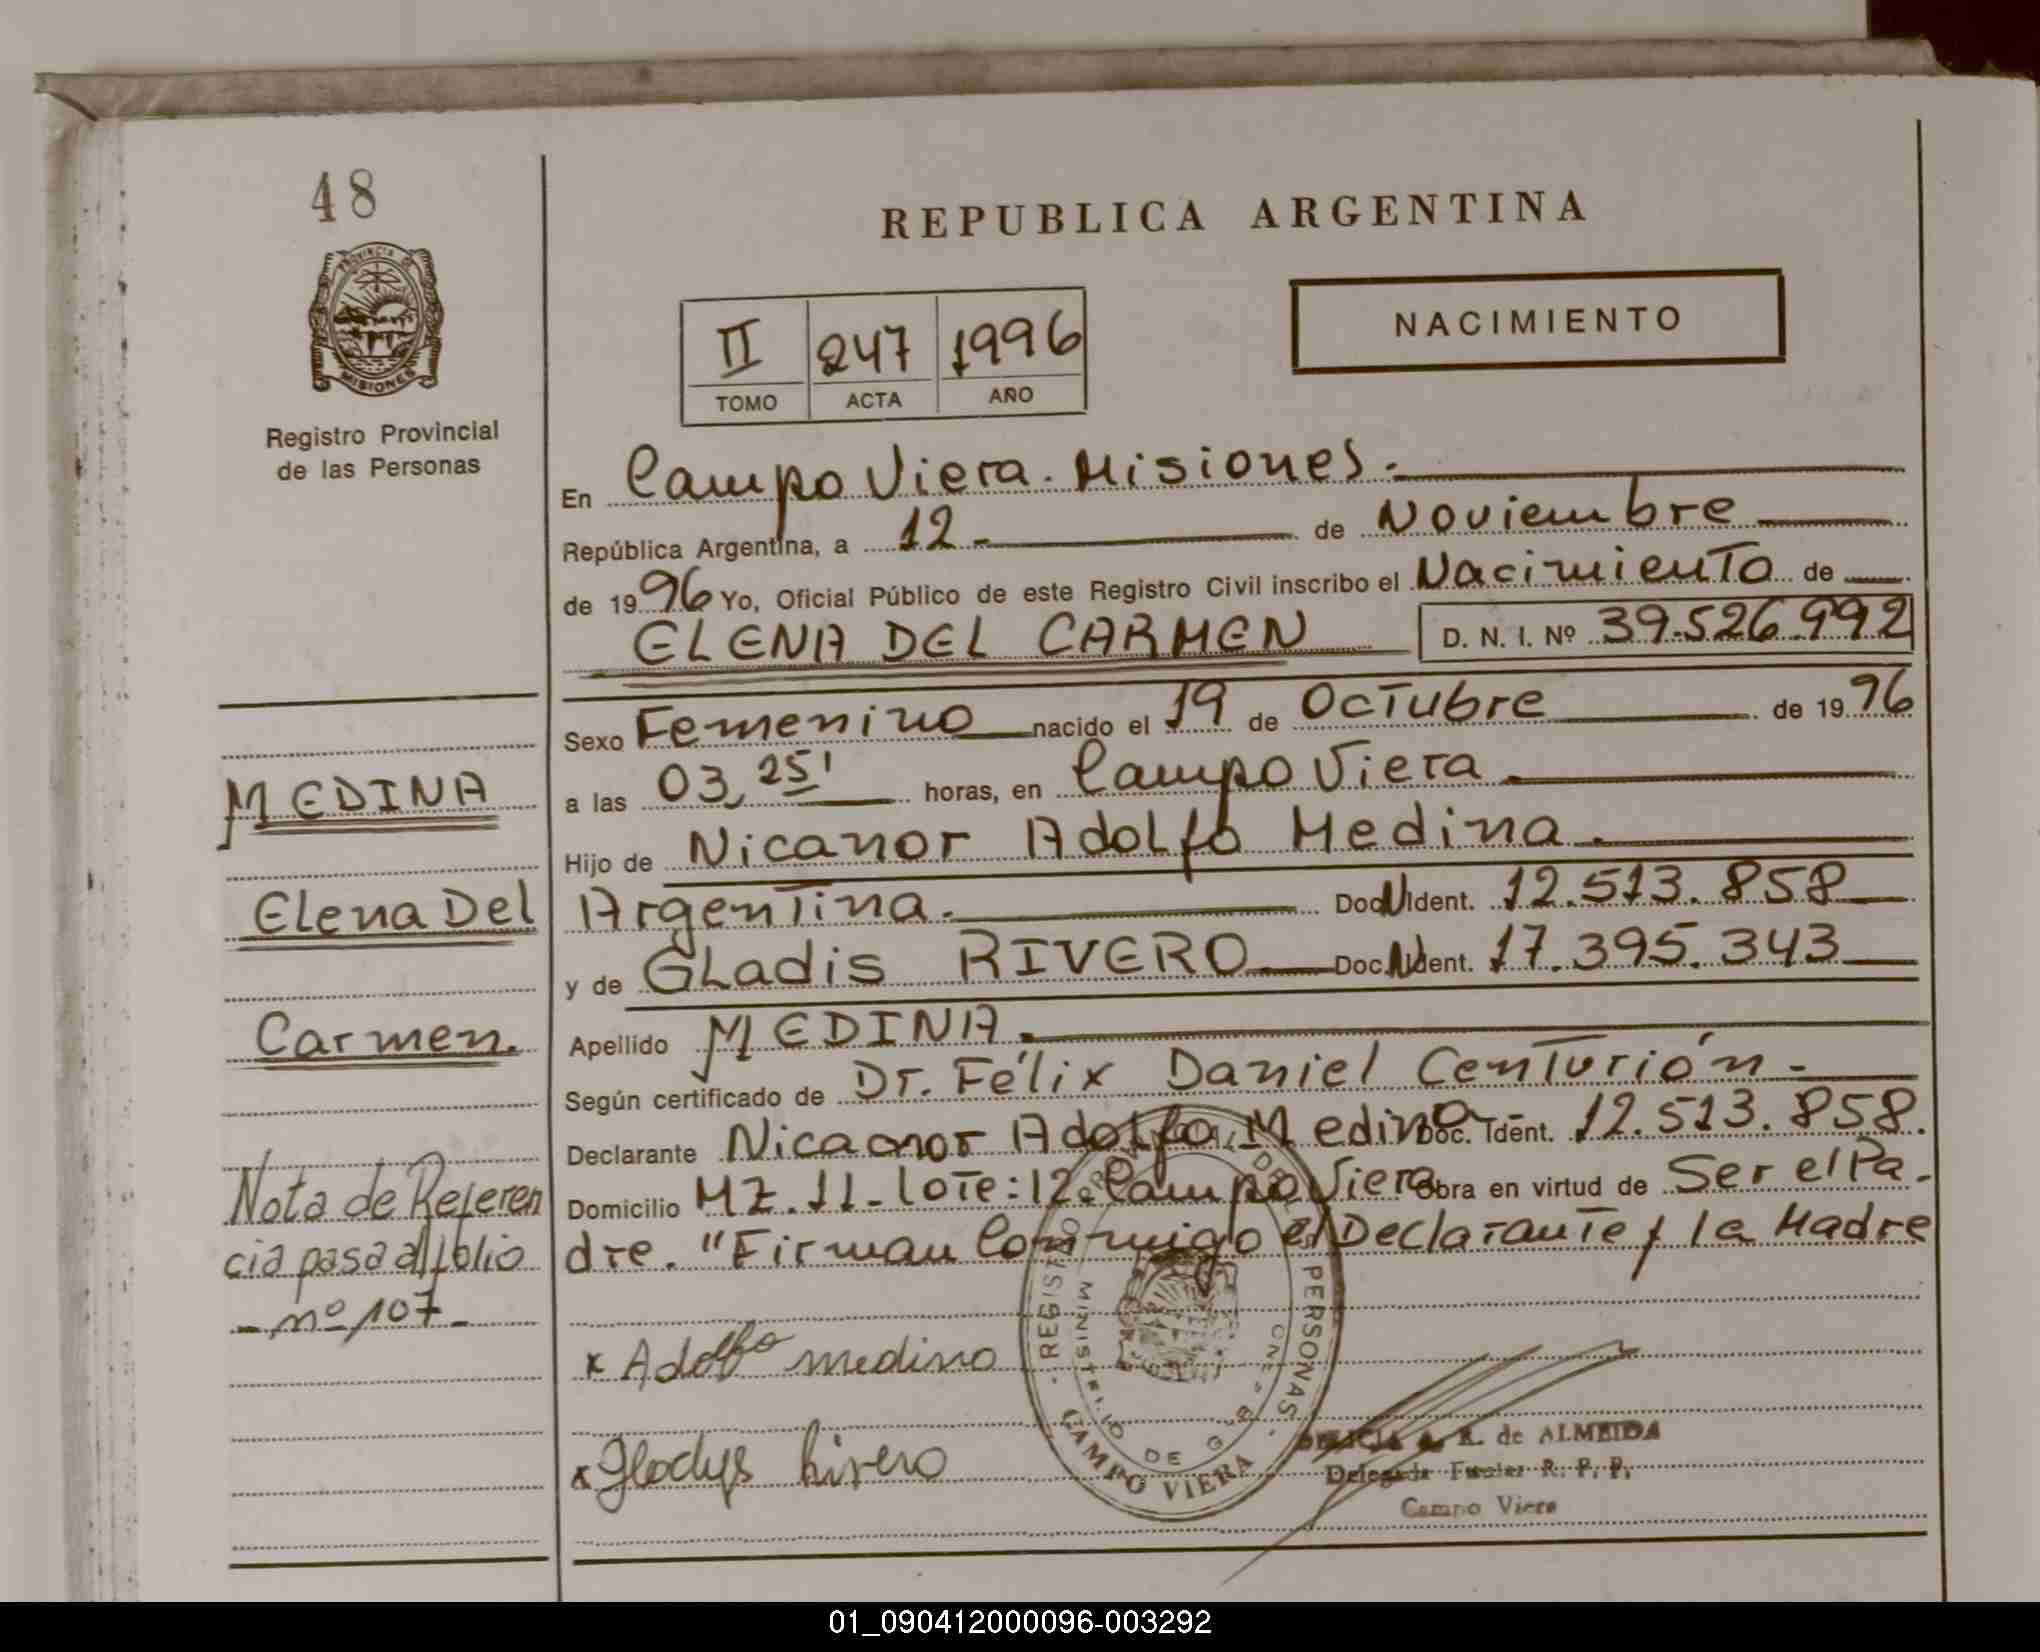 48
PROVINCIA DE
MISIONES
Registro Provincial
de las Personas
REPUBLICA ARGENTINA
NACIMIENTO
II 247 1996
TOMO ACTA AÑO
En Campo Viera. Misiones.
República Argentina, a 12 de Noviembre
de 1996 Yo, Oficial Público de este Registro Civil inscribo el Nacimiento de
ELENA DEL CARMEN D. N. I. Nº 39.526.992
Sexo Femenino nacido el 19 de Octubre de 1996
a las 03,25' horas, en Campo Viera
Hijo de Nicanor Adolfo Medina.
Argentina. Doc. N Ident. 12.513.858
y de Gladis RIVERO Doc. N Ident. 17.395.343
Apellido MEDINA.
Según certificado de Dr. Félix Daniel Centurión.-
Declarante Nicaonor Adolfo Medina Doc. Ident. 12.513.858.
Domicilio MZ. 11- lote:12. Campo Viera Obra en virtud de Ser el Pa-
dre. "Firman Conmigo el Declarante y la Madre
MEDINA
Elena Del
Carmen.
Nota de Referen
cia pasa al folio
- nº 107 -
x Adolfo medino
x Gladys Rivero
REGISTRO PERSONAS
MINISTERIO DE
CAMPO VIERA
A. R. de ALMEIDA
Delegada Titular R. P. P.
Campo Viera
01_090412000096-003292